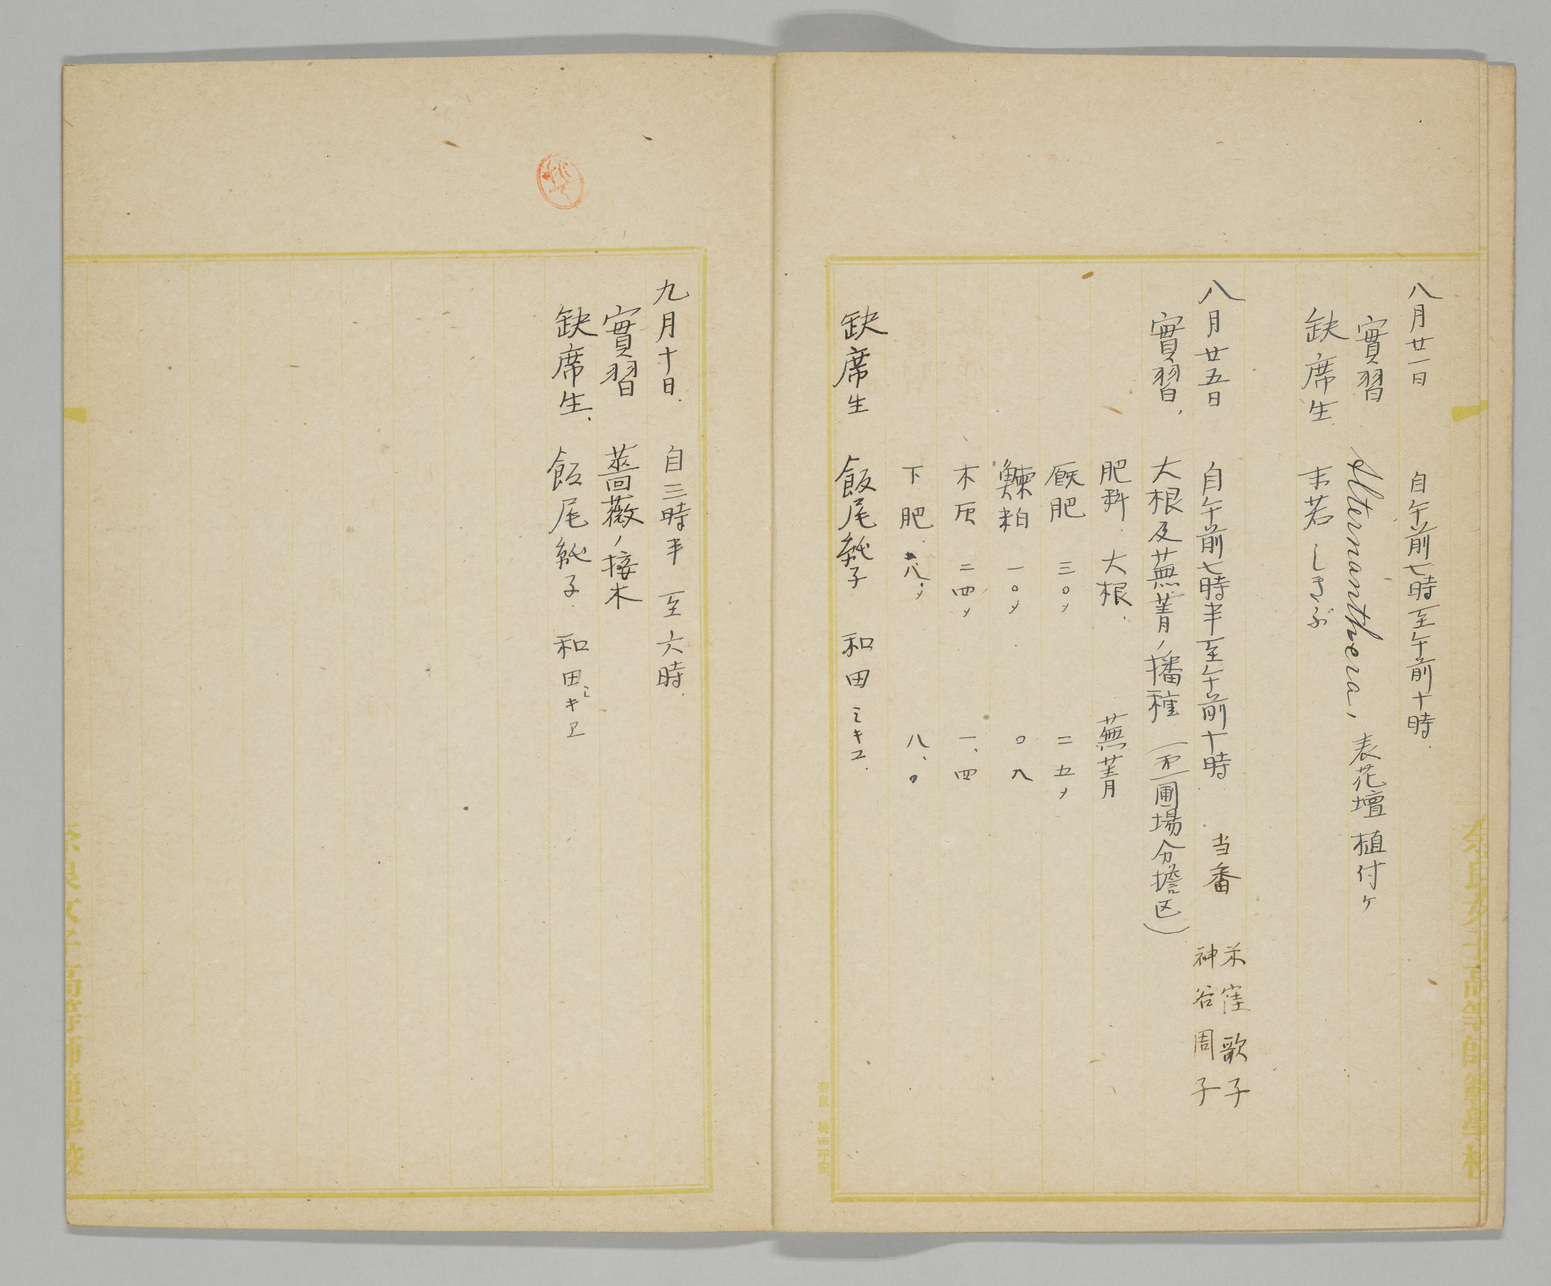 八月廿一日 自午前七時至午前十時.
實習 Alternanthera, 表花壇 植付ケ
缺席生 末若 しきぶ
八月廿五日 自午前七時半至午前十時 当番 米窪歌子
神谷周子
實習, 大根及蕪菁ノ播種 (不二圃場分擔区)
肥料. 大根. 蕪菁
厩肥 三〇〆 二五〆
鰊粕 一〇〆 〇八
木灰 二四〆 一、四
下肥. 八〆 八、〇
缺席生 飯尾純子 和田ミキヱ.
九月十日. 自三時半 至六時.
實習 薔薇ノ接木
缺席生、 飯尾純子. 和田ミキヱ
奈良女子高等師範學校
奈良女子高等師範學校